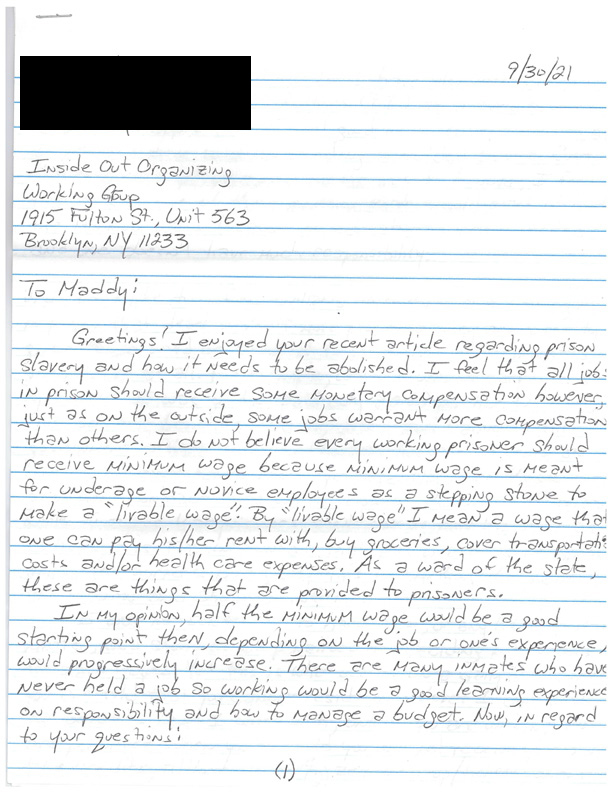 9/30/21
Inside Out Organizing
Working Group
1915 Fulton St., Unit 563
Brooklyn, NY 11233
To Maddy:
Greetings! I enjoyed your recent article regarding prison
slavery and how it needs to be abolished. I feel that all jobs
in prison should receive some monetery compensation however,
just as on the outside, some jobs warrant more compensation
than others. I do not believe every working prisoner should
receive minimum wage because minimum wage is meant
for underage or novice employees as a stepping stone to
make a "livable wage". By "livable wage" I mean a wage that
one can pay his/her rent with, buy groceries, cover transportati
costs and/or health care expenses. As a ward of the state,
these are things that are provided to prisoners.
In my opinion, half the minimum wage would be a good
starting point then, depending on the job or one's experience,
would progressively increase. There are many inmates who have
never held a job so working would be a good learning experience
on responsibility and how to manage a budget. Now, in regard
to your questions:
(1)